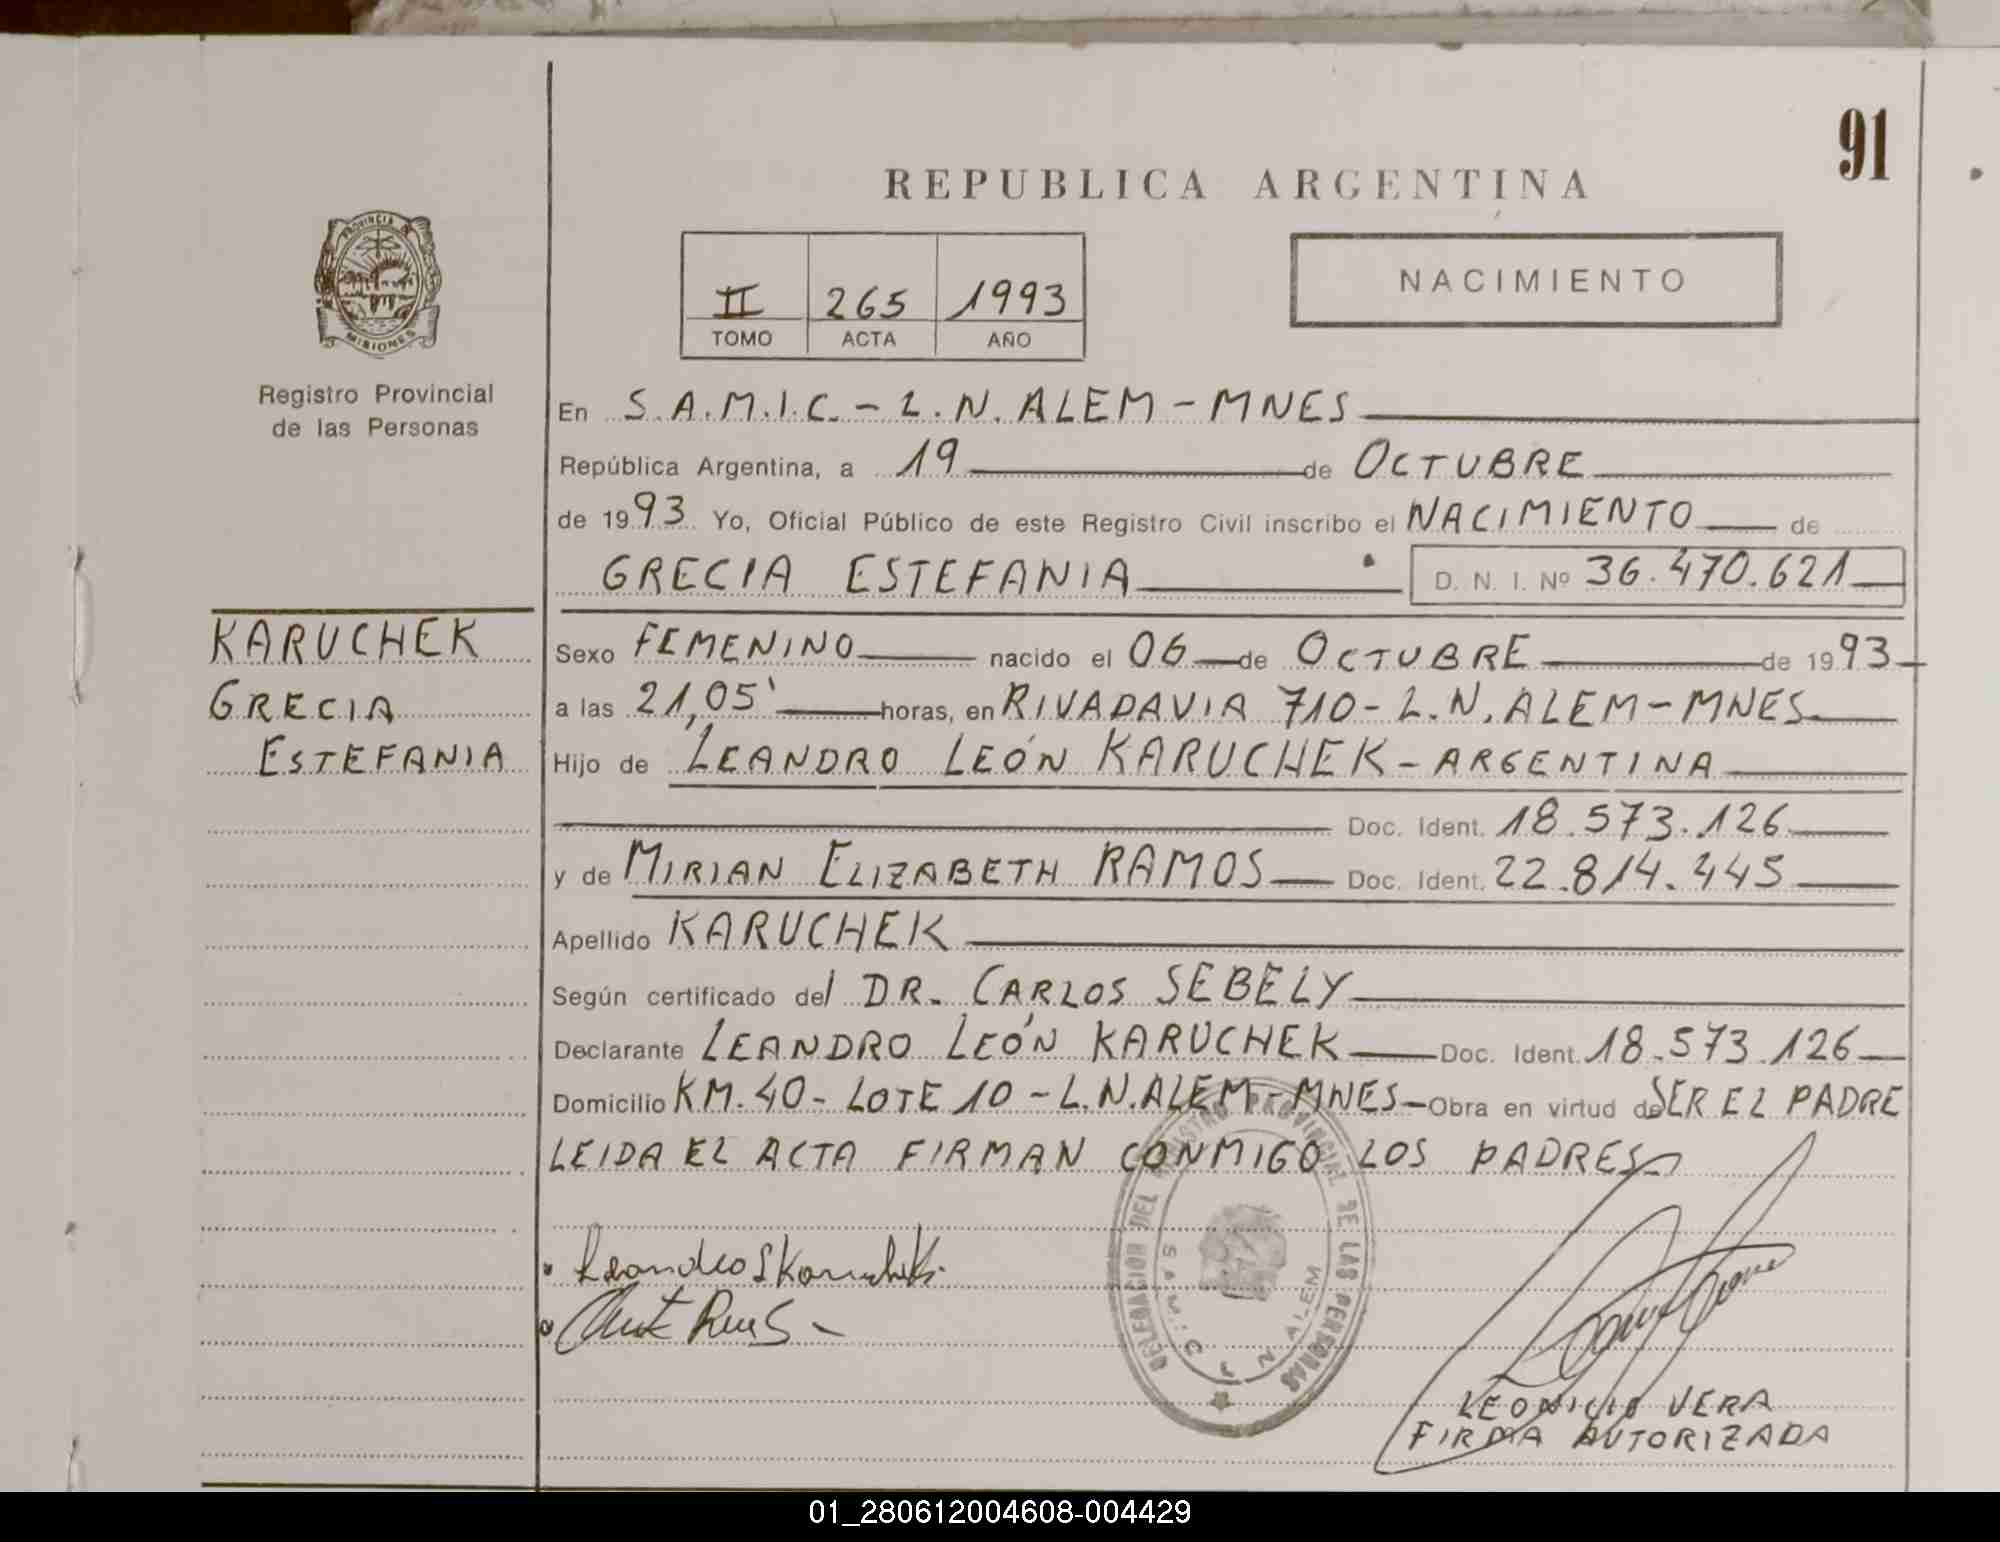 91
REPUBLICA ARGENTINA
PROVINCIA DE MISIONES
II 265 1993
TOMO ACTA AÑO
NACIMIENTO
Registro Provincial
de las Personas
En S.A.M.I.C. - L.N. ALEM - MNES
República Argentina, a 19 de OCTUBRE
de 1993 Yo, Oficial Público de este Registro Civil inscribo el NACIMIENTO de
GRECIA ESTEFANIA D. N. I. Nº 36.470.621
KARUCHEK
GRECIA
ESTEFANIA
Sexo FEMENINO nacido el 06 de OCTUBRE de 1993
a las 21,05' horas, en RIVADAVIA 710 - L.N. ALEM - MNES.
Hijo de LEANDRO LEÓN KARUCHEK - ARGENTINA
Doc. Ident. 18.573.126
y de MIRIAN ELIZABETH RAMOS Doc. Ident. 22.814.445
Apellido KARUCHEK
Según certificado del DR. CARLOS SEBELY
Declarante LEANDRO LEÓN KARUCHEK Doc. Ident. 18.573.126
Domicilio KM. 40 - LOTE 10 - L.N. ALEM - MNES - Obra en virtud de SER EL PADRE
LEIDA EL ACTA FIRMAN CONMIGO LOS PADRES
DELEGACION DEL REGISTRO PROVINCIAL DE LAS PERSONAS
ALEM
LEONICIO VERA
FIRMA AUTORIZADA
01_280612004608-004429